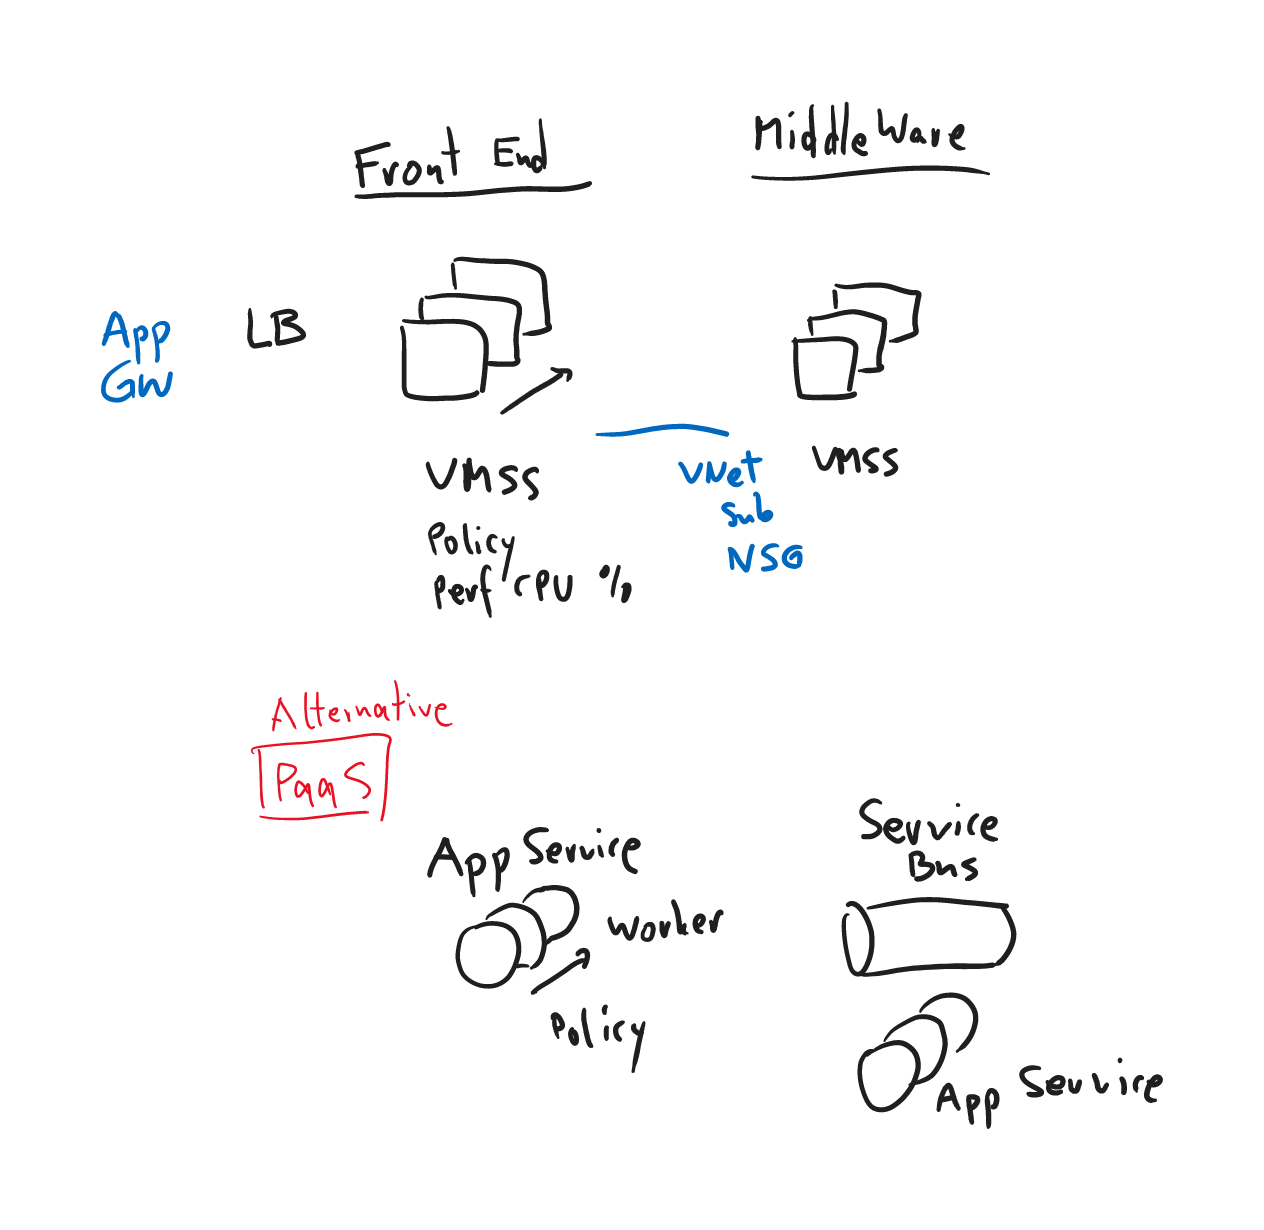 Front End
MiddleWare
App
GW
LB
VMSS
Policy
Perf CPU %
VNet
Sub
NSG
VMSS
Alternative
PaaS
App Service
Worker
Policy
Service
Bus
App Service